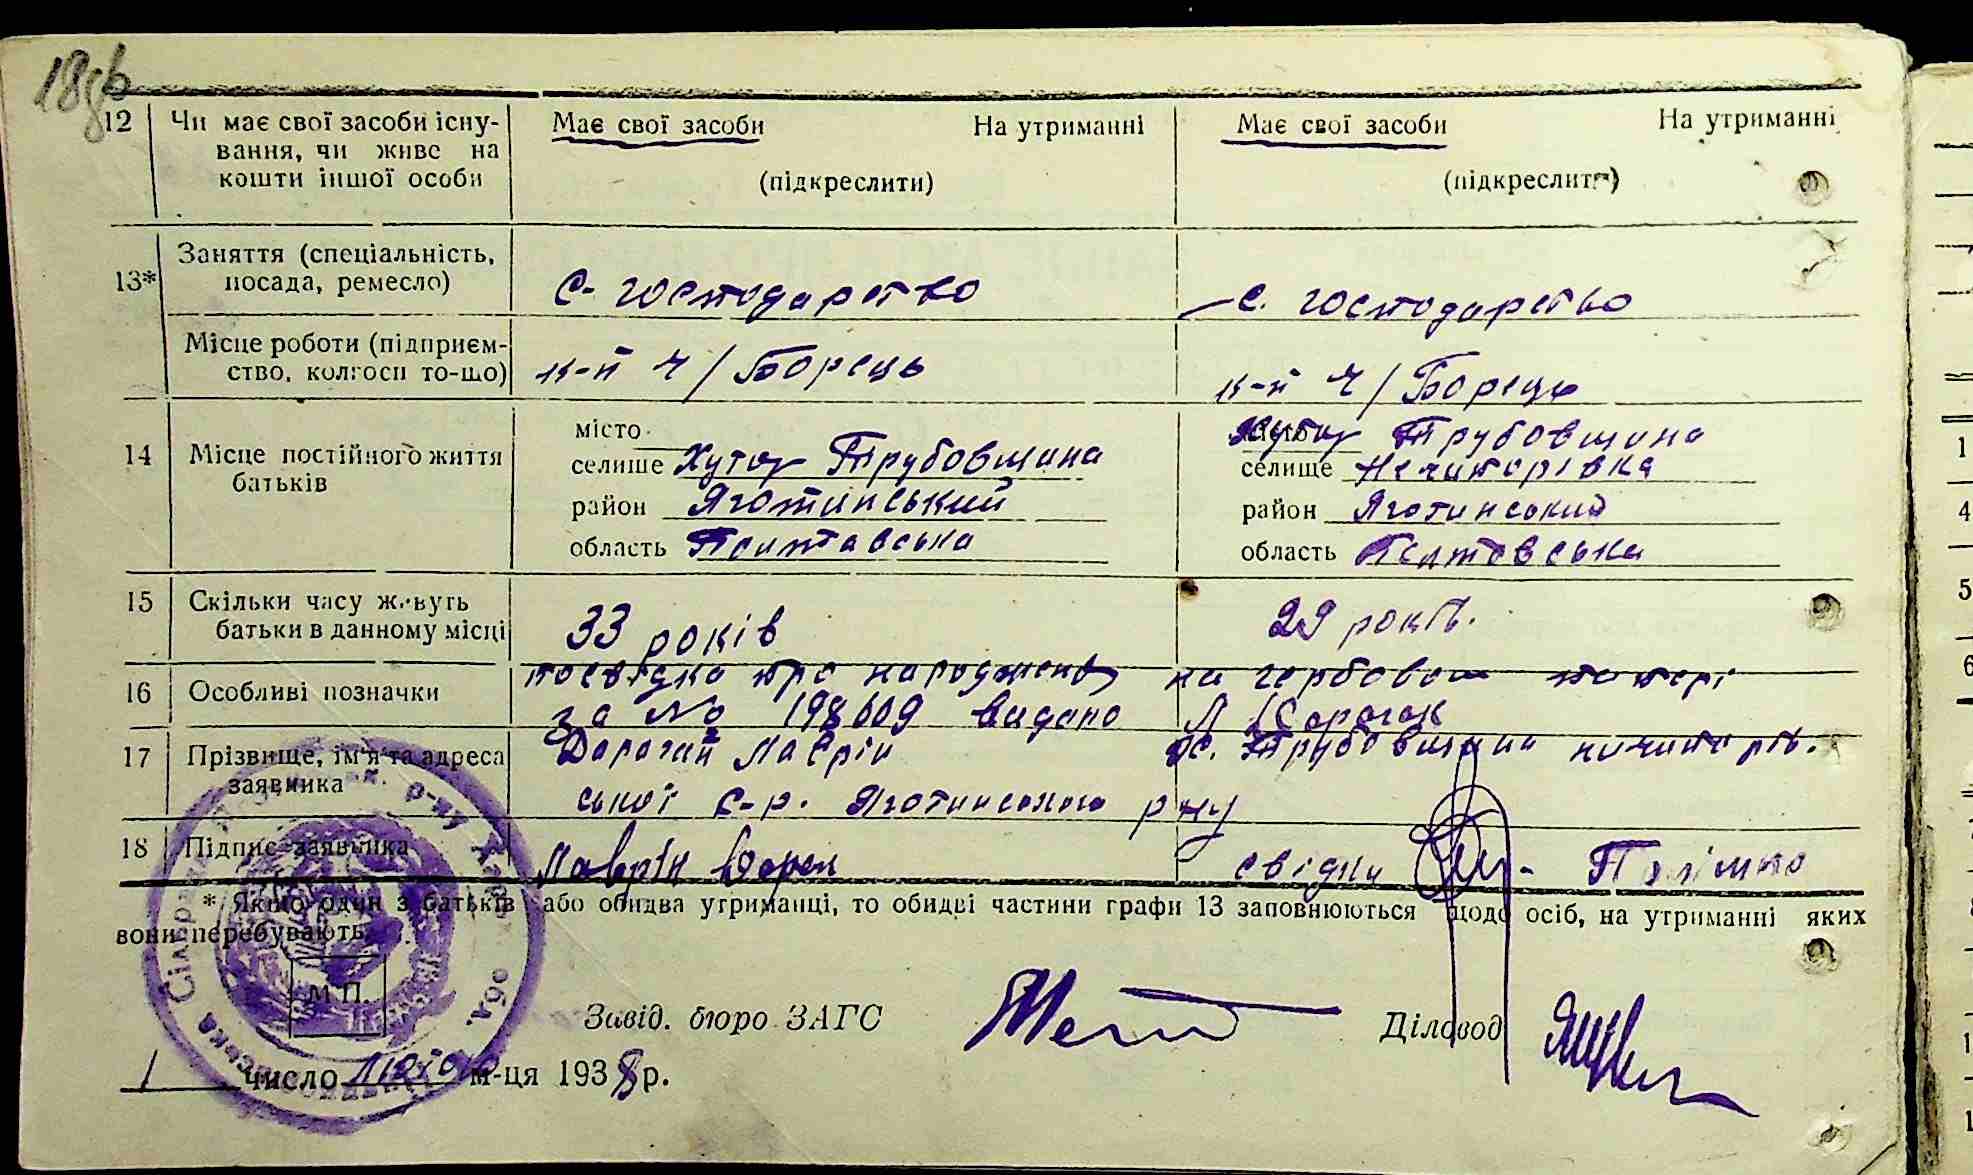 18зв
12 Чи має свої засоби існу- Має свої засоби На утриманні Має свої засоби На утриманні
вання, чи живе на
кошти іншої особи (підкреслити) (підкреслити)
Заняття (спеціальність,
13* посада, ремесло) С-господарство С. господарство
Місце роботи (підприєм-
ство, колгосп то-що) к-п Ч/Борець к-п Ч/Борець
місто Хутор Трубовщина
14 Місце постійного життя селище Хутор Трубовщина селище Ничипорівка
батьків район Яготинський район Яготинський
область Полтавська область Полтавська
15 Скільки часу живуть
батьки в данному місці 33 років 29 років.
16 Особливі позначки посвідка про народження на гербовом папері
за № 198609 видано
17 Прізвище, ім'я та адреса Лаврін х. Трубовщини ничипорів.
заявника ської с-р. Яготинського р-ну
18 Підпис заявника Лаврін свідки
* Якщо один з батьків або обидва утриманці, то обидві частини графи 13 заповнюються щодо осіб, на утриманні яких
вони перебувають.
М П.
Завід. бюро ЗАГС Діловод
1 число м-ця 1938 р.